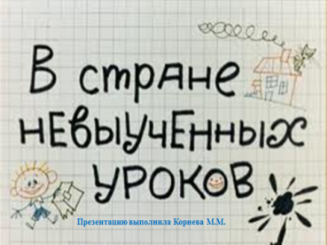 В стране
невыученных
уроков
Презентацию выполнила Корнева М.М.